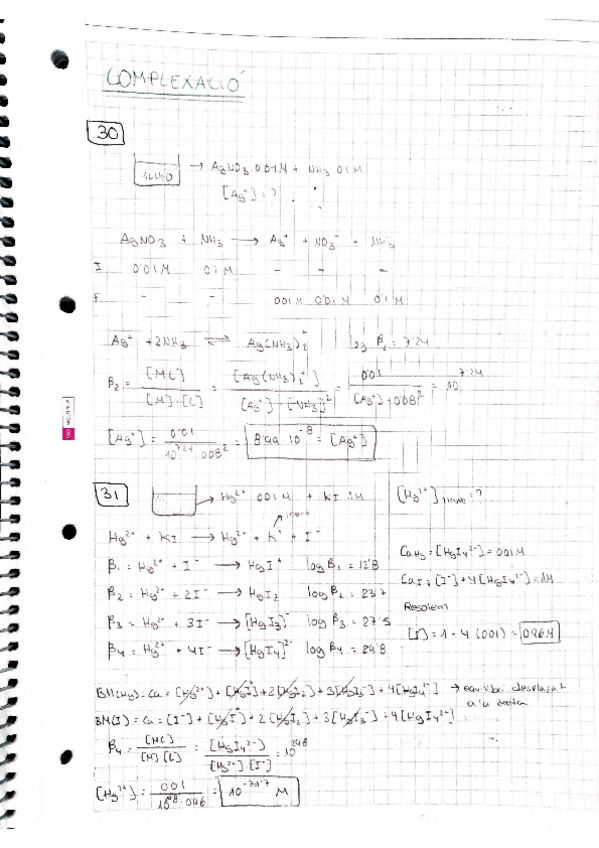 COMPLEXACIÓ
30
→ AgNO3 0.01M + NH3 0.1M
[Ag⁺] = ?
AgNO3 + NH3 → Ag⁺ + NO3⁻ + NH3
I 0.01M 0.1M - - -
F - - 0.01M 0.01M 0.1M
Ag⁺ + 2NH3 ⇌ Ag(NH3)2⁺ log β2 = 7.24
β2 = [ML] / [M]·[L] = [Ag(NH3)2⁺] / [Ag⁺]·[NH3]² = 0.01 / [Ag⁺]·0.08² = 10^7.24
[Ag⁺] = 0.01 / 10^7.24·0.08² = 8.99·10⁻⁸ = [Ag⁺]
31 → Hg²⁺ 0.01M + KI 1M [Hg²⁺] lliure = ?
Hg²⁺ + KI → Hg²⁺ + K⁺ + I⁻
β1 = Hg²⁺ + I⁻ → HgI⁺ log β1 = 12.8
β2 = Hg²⁺ + 2I⁻ → HgI2 log β2 = 23.7
β3 = Hg²⁺ + 3I⁻ → [HgI3]⁻ log β3 = 27.5
β4 = Hg²⁺ + 4I⁻ → [HgI4]²⁻ log β4 = 29.8
CaHg = [HgI4²⁻] = 0.01M
CaI = [I⁻] + 4[HgI4²⁻] = 1M
Resolem
[I⁻] = 1 - 4·(0.01) = 0.96M
BM(Hg) = Ca = [Hg²⁺] + [HgI⁺] + 2[HgI2] + 3[HgI3⁻] + 4[HgI4²⁻] → equilibri desplaçat
a la dreta
BM(I) = Ca = [I⁻] + [HgI⁺] + 2[HgI2] + 3[HgI3⁻] + 4[HgI4²⁻]
β4 = [ML] / [M]·[L] = [HgI4²⁻] / [Hg²⁺]·[I⁻] = 10^29.8
[Hg²⁺] = = 10^-31.7 M